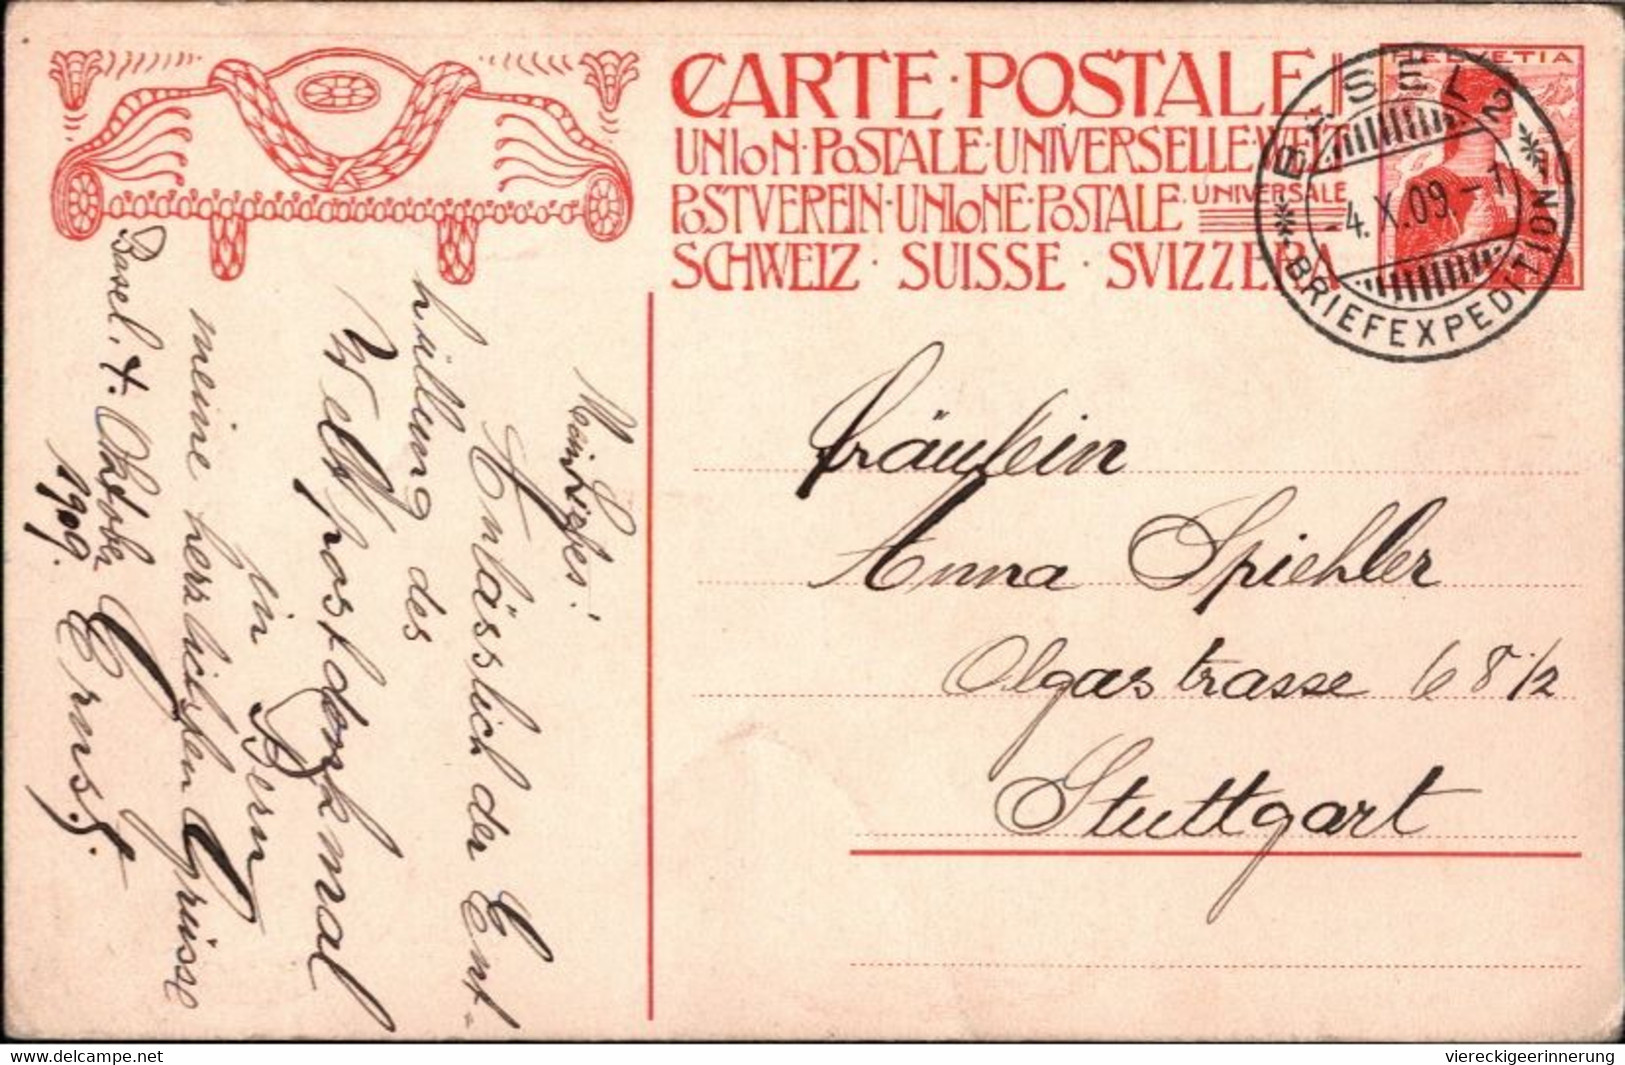 CARTE · POSTALE
UNION · POSTALE · UNIVERSELLE · WELT
POSTVEREIN · UNIONE · POSTALE · UNIVERSALE
SCHWEIZ · SUISSE · SVIZZERA
HELVETIA
BASEL 2
-4. X. 09. -1
BRIEFEXPEDITION
Fräulein
Anna Spiehler
Olgastrasse 68 1/2
Stuttgart
Anlässlich der Ent-
hüllung des
Weltpostdenkmal
in Bern
meine herzlichsten Grüsse
Basel. 4. Oktober
1909. Ernst.
delcampe.net
viereckigeerinnerung